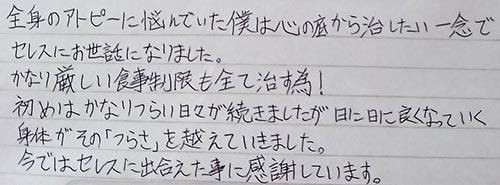 全身のアトピーに悩んでいた僕は心の底から治したい一念で
セレスにお世話になりました。
かなり厳しい食事制限も全て治す為！
初めはかなりつらい日々が続きましたが日に日に良くなっていく
身体がその「つらさ」を越えていきました。
今では、セレスに出合えた事に感謝しています。